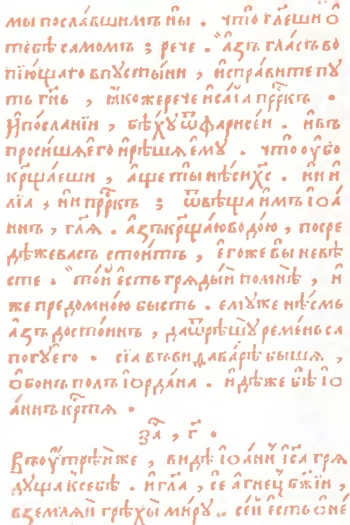 мы пославшимъ ны . что гл҃еши ѡ҆
тебѣ самомъ ; рече . а҆зъ гласъ во
пїющаго впустыни , исправите пу
ть гн҃ь , ꙗ҆коже рече и҆саїа прⷪ҇ркъ .
И҆ посланїи , бѣхꙋ ѿ фарисеи . и҆ въ
просиша є҆го и҆ рѣша є҆мꙋ . что оу҆бо
крⷭ҇щаеши , а҆ще ты нѣси хс҃ . ни и҆
лїа , ни прⷪ҇ркъ ; ѿвѣща и҆мъ і҆ѡа
ннъ , гл҃ѧ . а҆зъ крⷭ҇щаю водою , посре
дѣже васъ стоитъ , є҆гоже вы невѣ
сте . той є҆сть грѧдый по мнѣ , и҆
же предо мною бысть . є҆мꙋже нѣсмь
а҆зъ достоинъ , да ѿрѣшꙋ ремень са
погꙋ є҆го . сїа въ виѳаварѣ быша ,
ѡ҆бонъ полъ і҆ѡрдана . и҆дѣже бѣ і҆ѡ
аннъ крⷭ҇тѧ .
за҃ , г҃ .
Въ оу҆трѣйже , видѣ і҆ѡаннъ і҆с҃а грѧ
дꙋща к себѣ . и҆ гл҃а , се а҆гнецъ бж҃їи ,
вземлѧй грѣхы мирꙋ . сей є҆сть ѡ҆ не